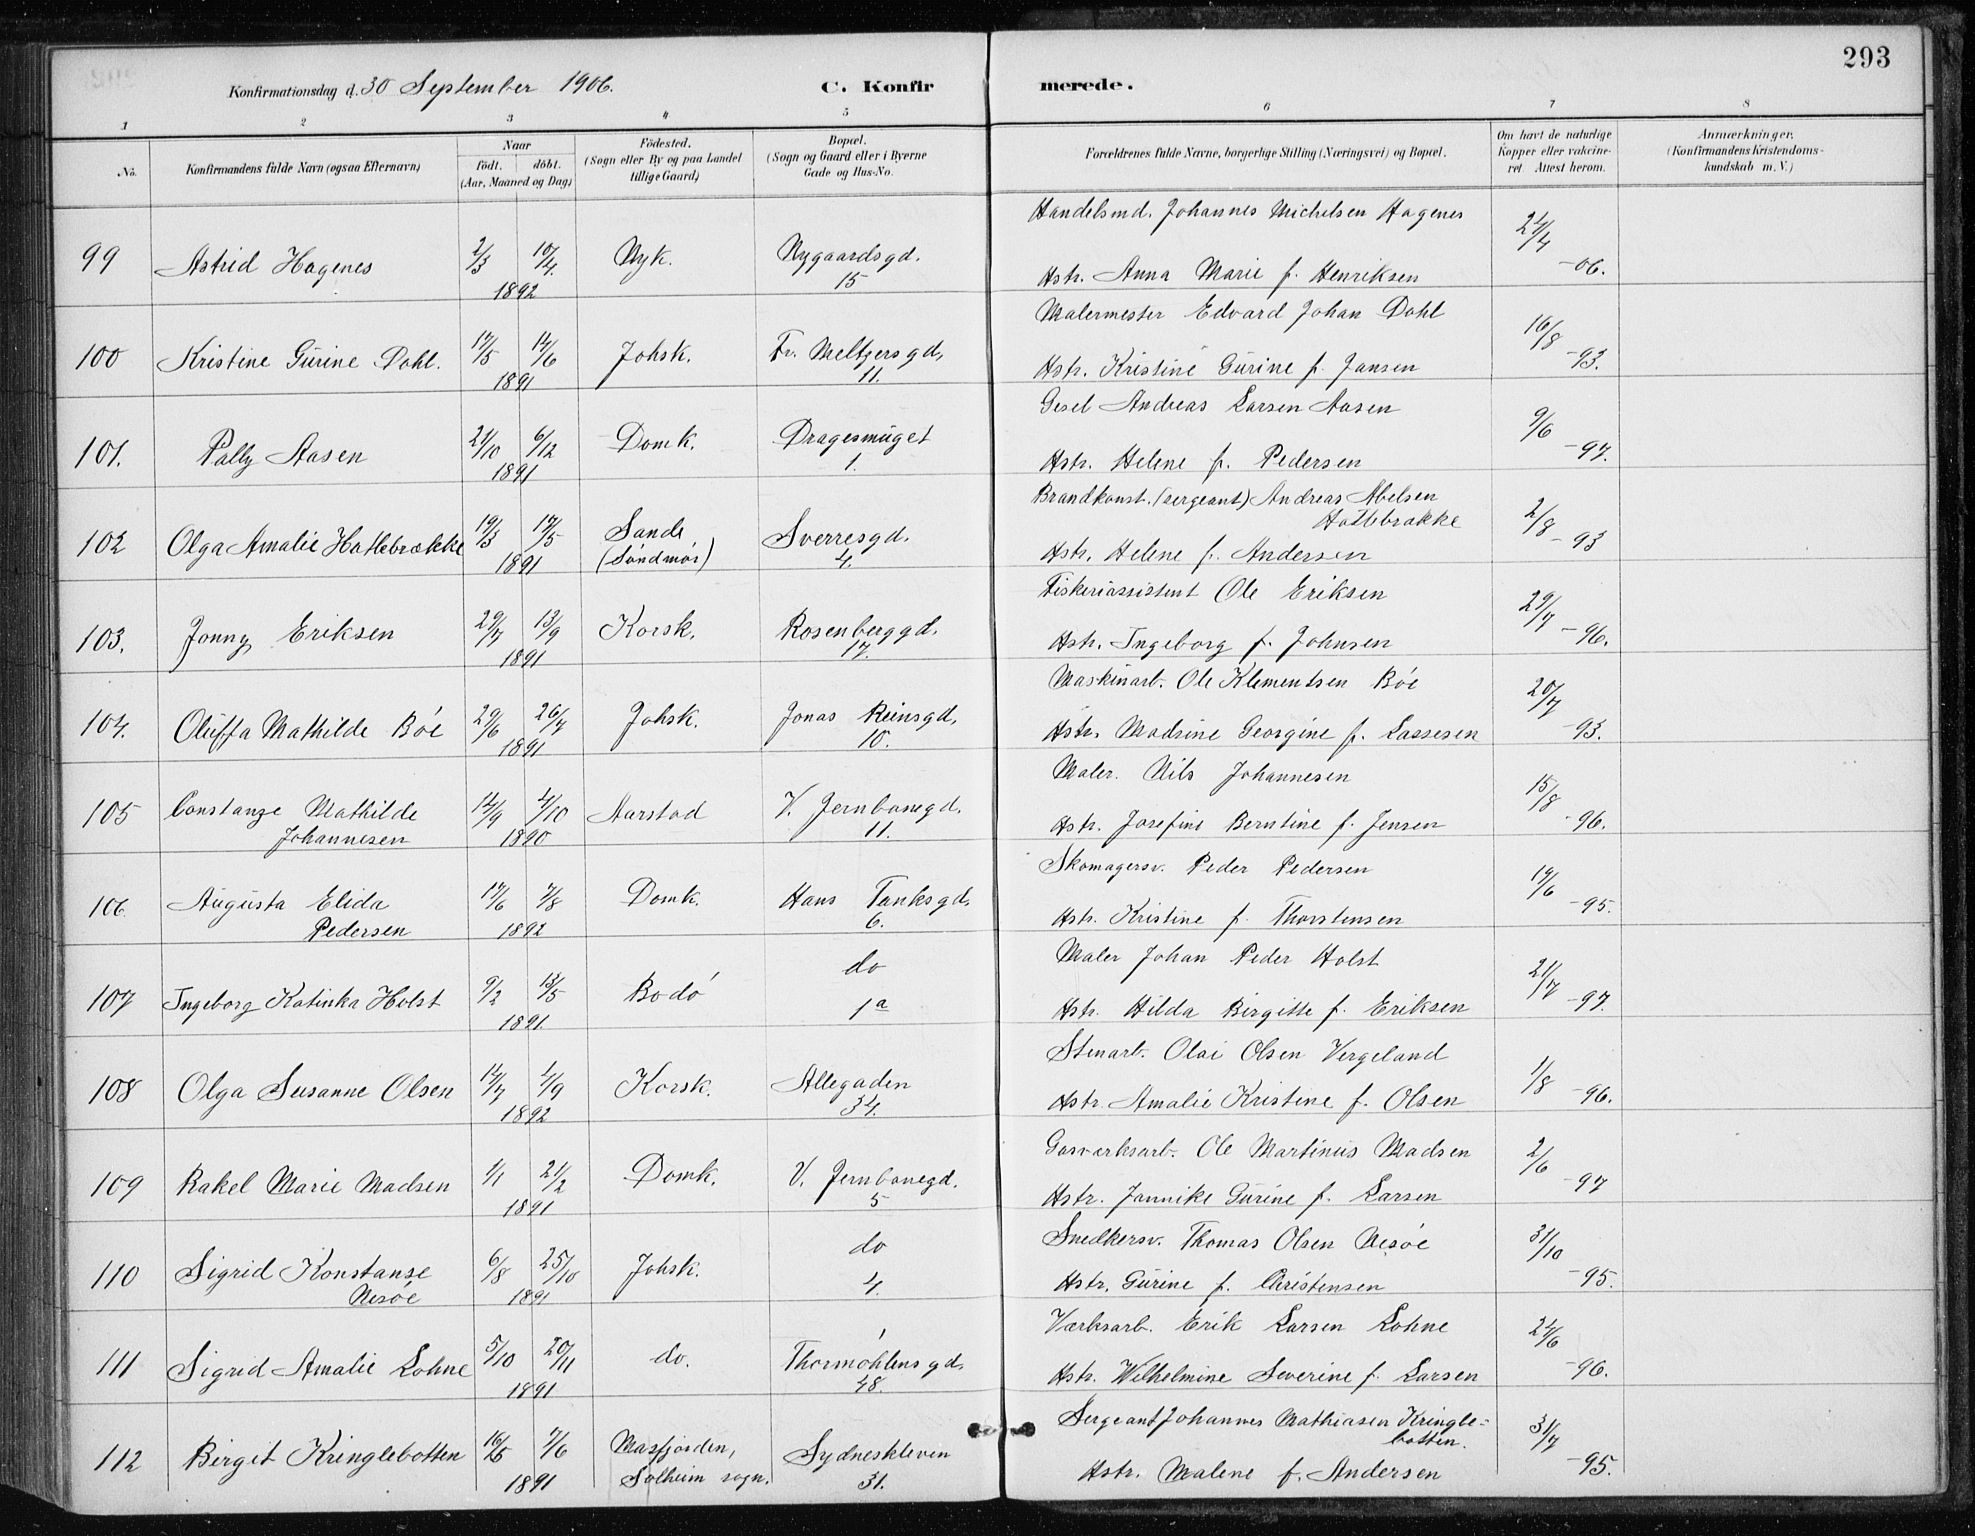 293
Konfirmationsdag d. 30 September 1906.
C. Konfirmerede.
1 2 3 4 5 6 7 8
No.
Konfirmandens fulde Navn (ogsaa Efternavn)
Naar
födt. döbt.
(Aar, Maaned og Dag)
Födested.
(Sogn eller By og paa Landet
tillige Gaard)
Bopæl.
(Sogn og Gaard eller i Byerne
Gade og Hus-No.
Forældrenes fulde Navne, borgerlige Stilling (Næringsvei) og Bopæl.
Om havt de naturlige
Kopper eller vakcine-
ret. Attest herom.
Anmærkninger.
(Konfirmandens Kristendoms-
kundskab m. V.)
Handelsmd. Johannes Michelsen Hagenes
99 Astrid Hagenes 2/3 10/4 Nyk. Nygaardsgd. 24/4
1892 15 Hstr. Anna Marie f. Henriksen -06.
Malermester Edvard Johan Dahl
100 Kristine Gurine Dahl. 17/5 14/6 Johsk. Fr. Meltzersgd. 16/8
1891 11. Hstr. Kristine Gurine f. Jansen -93.
Gesel Andreas Larsen Aasen
101. Pally Aasen 21/10 6/12 Domk. Dragesmuget 9/6
1891 1. Hstr. Helene f. Pedersen -97.
Brandkonst. (sergeant) Andreas Abelsen
Hatlebrække
102 Olga Amalie Hatlebrække 19/3 17/5 Sande Sverresgd. 2/8
1891 (Söndmör) 4. Hstr. Helene f. Andersen -93
Fiskeriassistent Ole Eriksen
103. Jonny Eriksen 29/7 13/9 Korsk. Rosenberggd. 29/7
1891 17. Hstr. Ingeborg f. Johnsen -96.
Maskinarb. Ole Klementsen Böe
104. Oluffa Mathilde Böe 29/6 26/7 Johsk. Jonas Reinsgd. 20/7
1891 10. Hstr. Madsine Georgine f. Lassesen -93.
Maler. Nils Johannesen
105 Constanze Mathilde 14/9 4/10 Aarstad V. Jernbanegd. 15/8
Johannesen 1890 11. Hstr. Josefine Berntine f. Jensen -96.
Skomagersv. Peder Pedersen
106 Augusta Elida 17/6 7/8 Domk. Hans Tanksgd. 19/6
Pedersen 1892 6. Hstr. Kristine f. Thorstensen -95.
Maler Johan Peder Holst
107 Ingeborg Katinka Holst 9/2 13/5 Bodö do 21/7
1891 1a Hstr. Hilda Birgitte f. Eriksen -97.
Stenarb. Olai Olsen Vergeland
108 Olga Susanne Olsen 14/7 4/9 Korsk. Allegaden 1/8
1892 34. Hstr. Amalie Kristine f. Olsen -96.
Gasværksarb. Ole Martinus Madsen
109 Rakel Marie Madsen 1/1 21/2 Domk. V. Jernbanegd. 2/6
1891 5 Hstr. Jannike Gurine f. Larsen -97
Snedkersv. Thomas Olsen Nesöe
110 Sigrid Konstanse 6/8 25/10 Johsk. do 31/10
Nesöe 1891 4. Hstr. Gurine f. Christensen -95.
Værksarb. Erik Larsen Lohne
111 Sigrid Amalie Lohne 5/10 20/11 do. Thormöhlensgd. 24/6
1891 48. Hstr. Wilhelmine Severine f. Larsen -96.
Sergeant Johannes Mathiasen Kringle-
botten.
112 Birgit Kringlebotten 16/5 7/6 Masfjorden, Sydneskleven 31/7
1891 Solheim sogn. 31. Hstr. Malene f. Andersen -95.